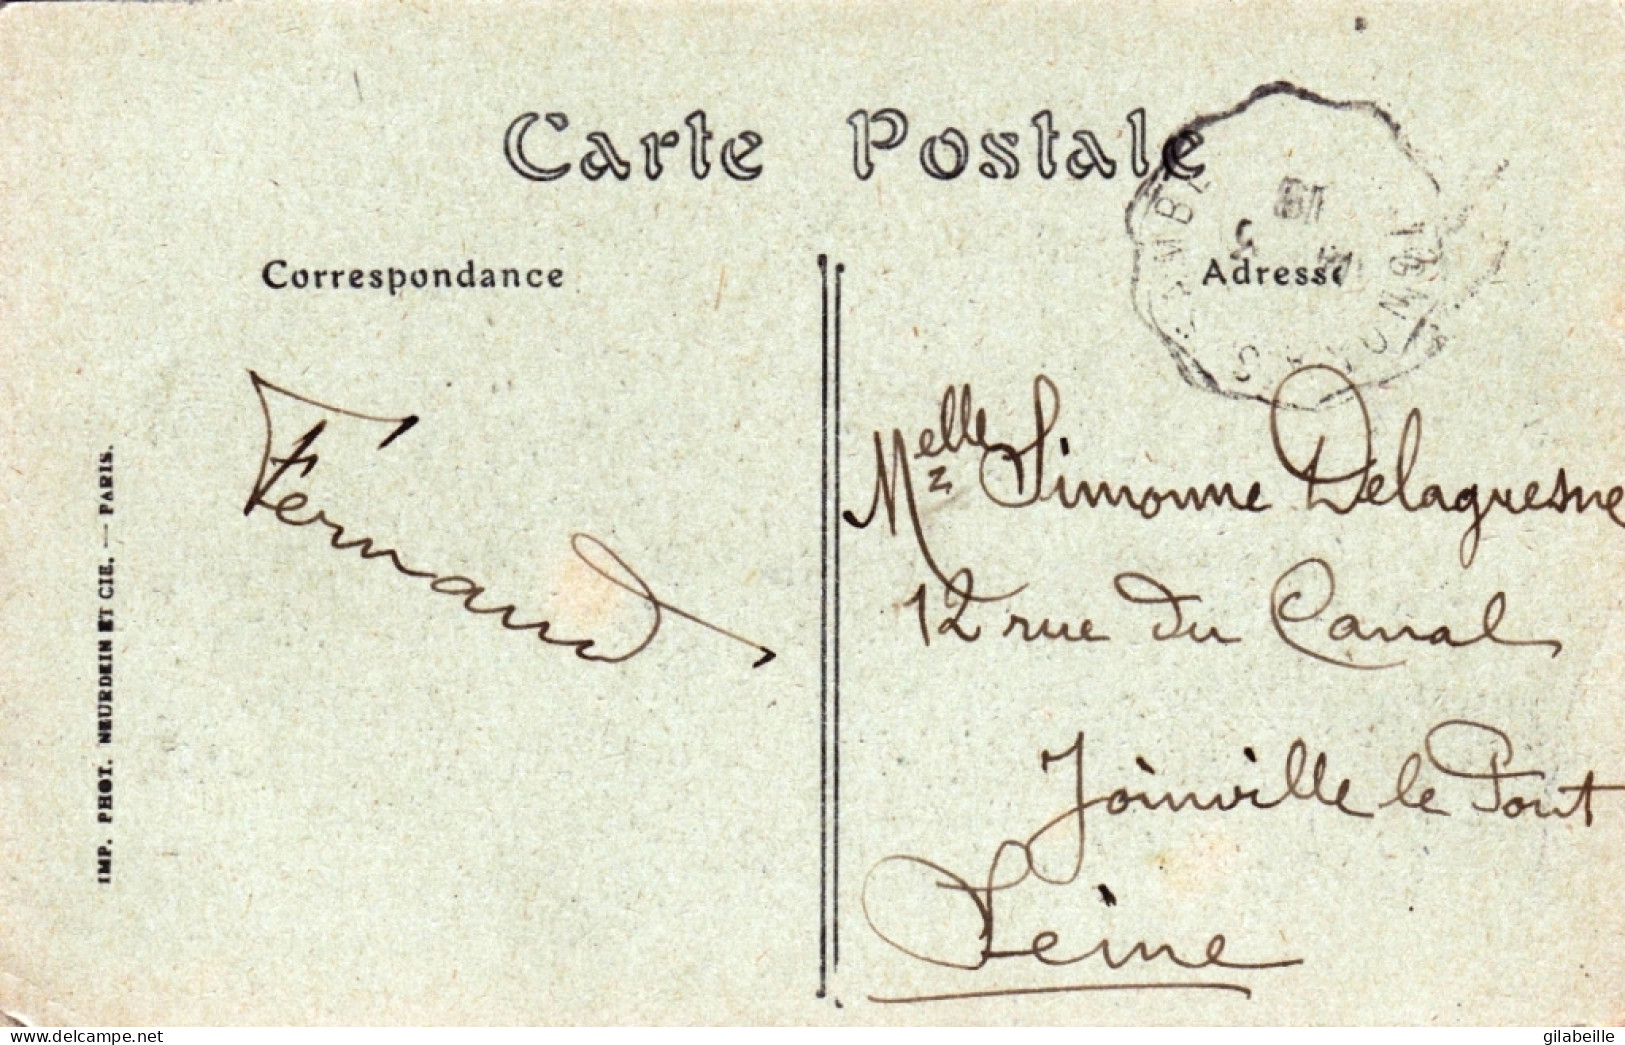 Carte Postale
Correspondance
Adresse
Fernand
Melle Simonne Delaguesne
12 rue du Canal
Joinville le Pont
Seine
IMP. PHOT. NEURDEIN ET CIE. — PARIS.
delcampe.net
gilabeille